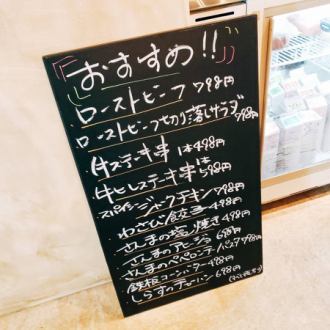 おすすめ!!
ローストビーフ 798円
ローストビーフ切り落しサラダ 798円
牛ステーキ串 1本498円
牛ヒレステーキ串 1本598円
スパイシージャークチキン 798円
わさび餃子 498円
さんまの塩焼き 498円
さんまのアヒージョ 698円
さんまのペペロンチーノパスタ 798円
鉄板コーンバター 498円
しらすのチャーハン 698円